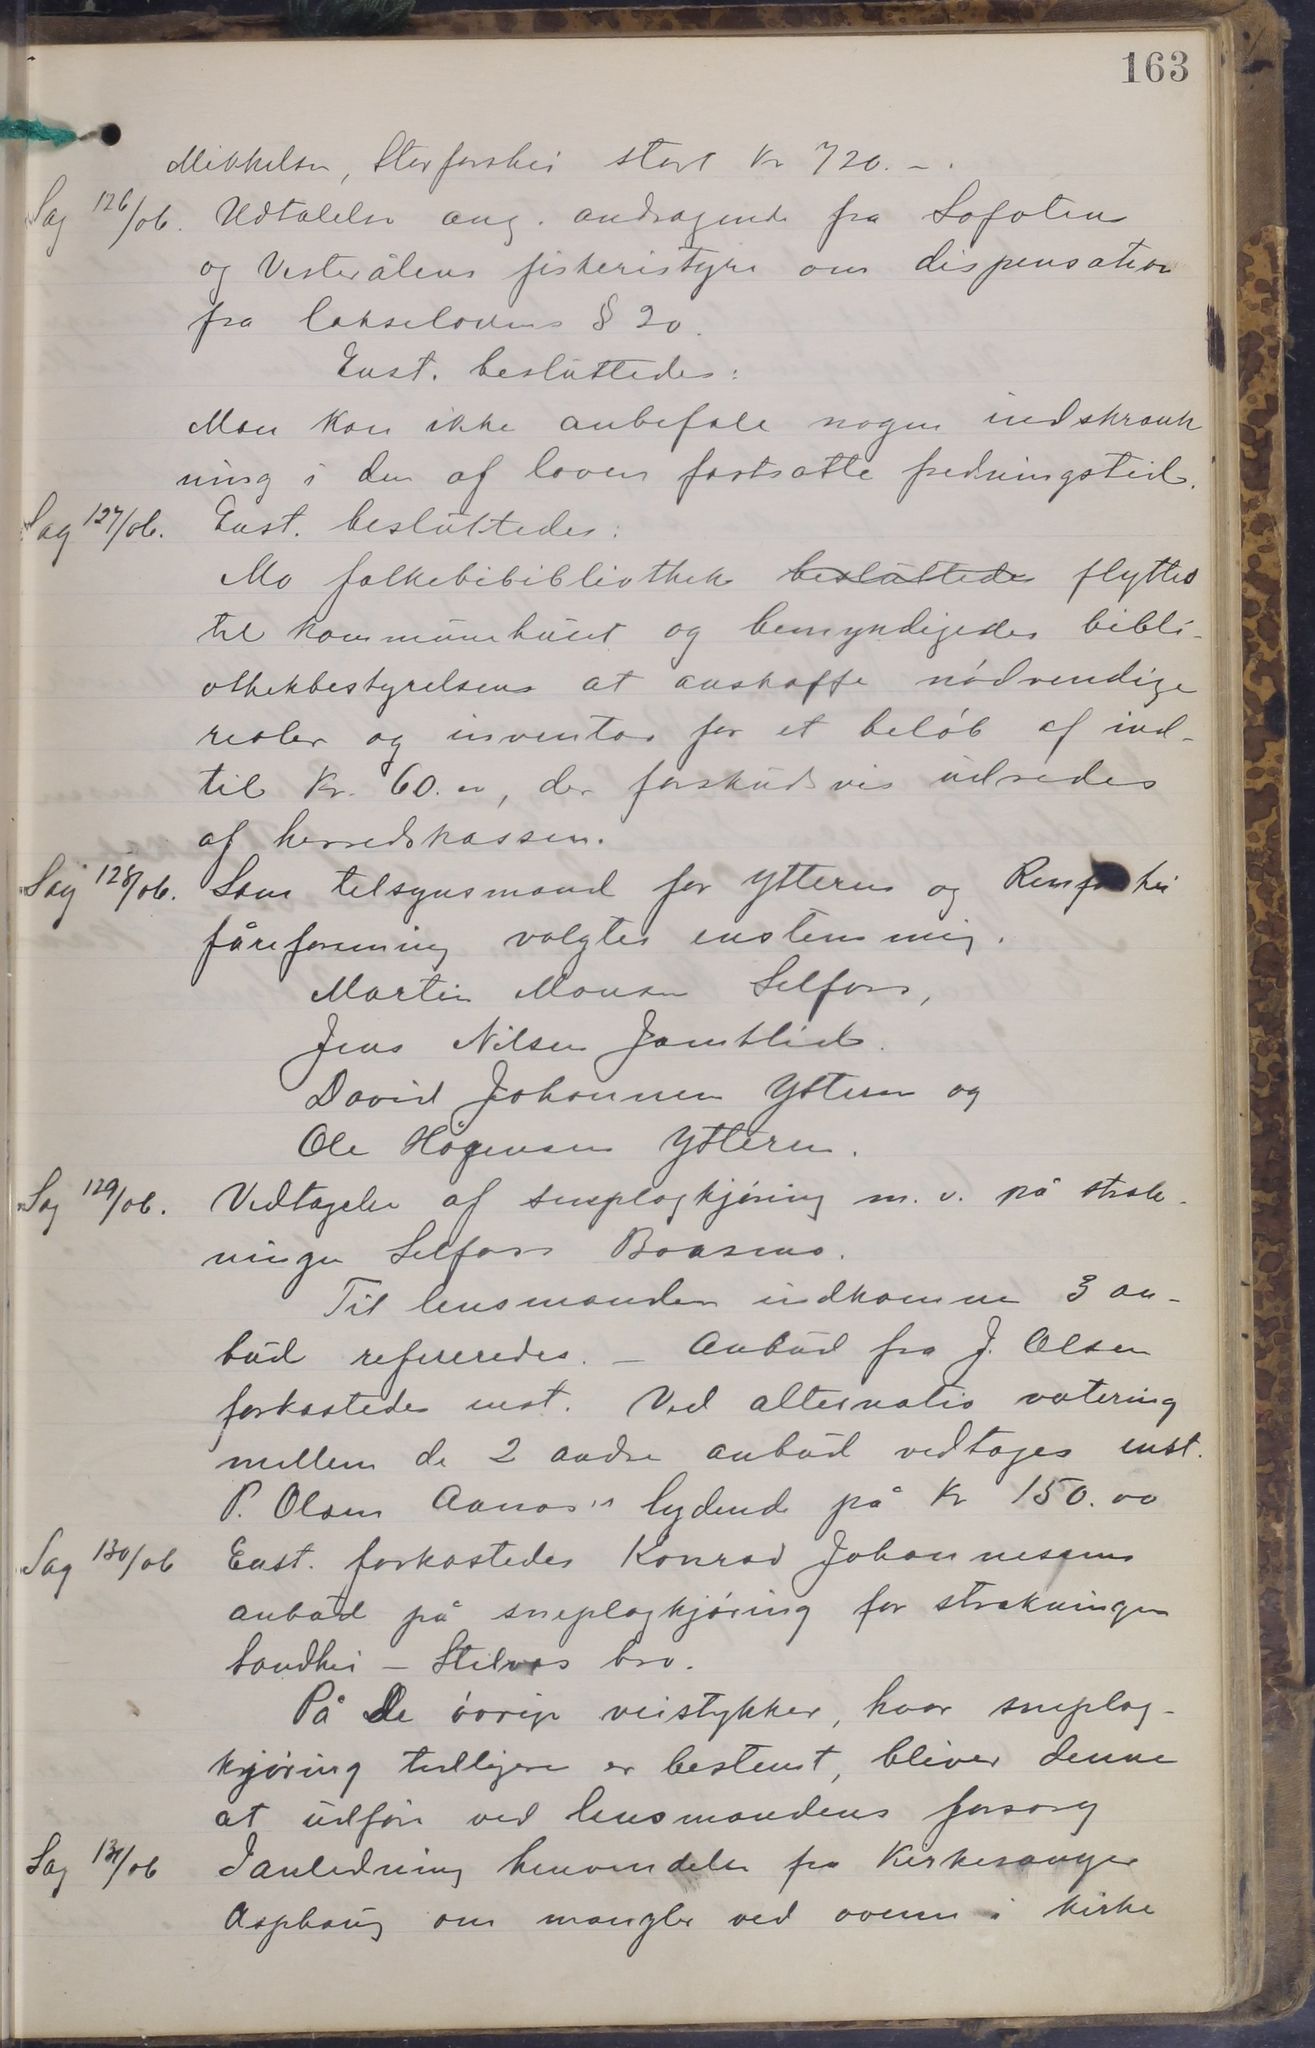 163
Mikkelsen, Storforshei stort Kr 720.–.
Sag 126/06. Udtalelse ang. andragende fra Lofotens
og Vesterålens fiskeristyre om dispensation
fra lakselovens § 20.
Enst. besluttedes:
Man kan ikke anbefale nogen indskrænk
ning i den af loven fastsatte fredningstid.
Sag 127/06. Enst. besluttedes:
Mo folkebibibliothek besluttedes flyttes
til kommunehuset og bemyndigedes bibli-
othekbestyrelsen at anskaffe nødvendige
reoler og inventar for et beløb af ind-
til Kr. 60.00, der forskudsvis udredes
af herredskassen.
Sag 128/06. Som tilsynsmænd for Ytteren og Renforshei
fåreforening valgtes enstemmig.
Martin Monsen Selfors,
Jens Nilsen Jamtlid.
David Johannesen Ytteren og
Ole Hågensen Ytteren.
Sag 129/06. Vedtagelse af sneplogkjøring m. v. på stræk-
ningen Selfors Boasmo.
Til lensmanden indkomne 3 an-
bud refereredes. – Anbud fra J. Olsen
forkastedes enst. Ved alternativ votering
mellem de 2 andre anbud vedtages enst.
P. Olsen Aanas's lydende på Kr 150.00
Sag 130/06 Enst. forkastedes Konrad Johannesens
anbud på sneplogkjøring for strækningen
Sandhei – Stilvas bro.
På De øvrige veistykker, hvor sneplog-
kjøring tidligere er bestemt, bliver denne
at udføre ved lensmandens forsorg
Sag 131/06 I anledning henvendelse fra Kirkesanger
Asphaug om mangler ved ovnen i kirke